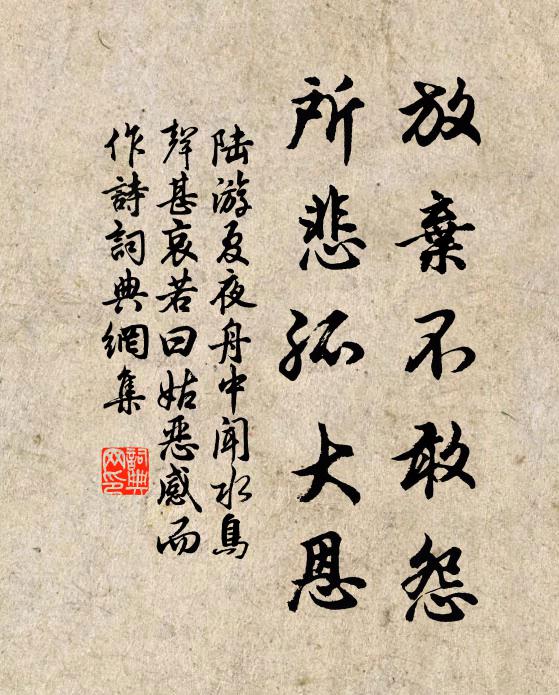 放棄不敢怨
所悲孤大恩
陆游夏夜舟中闻水鳥
聲甚哀若曰姑恶感而
作詩詞典網集
詞典
网印